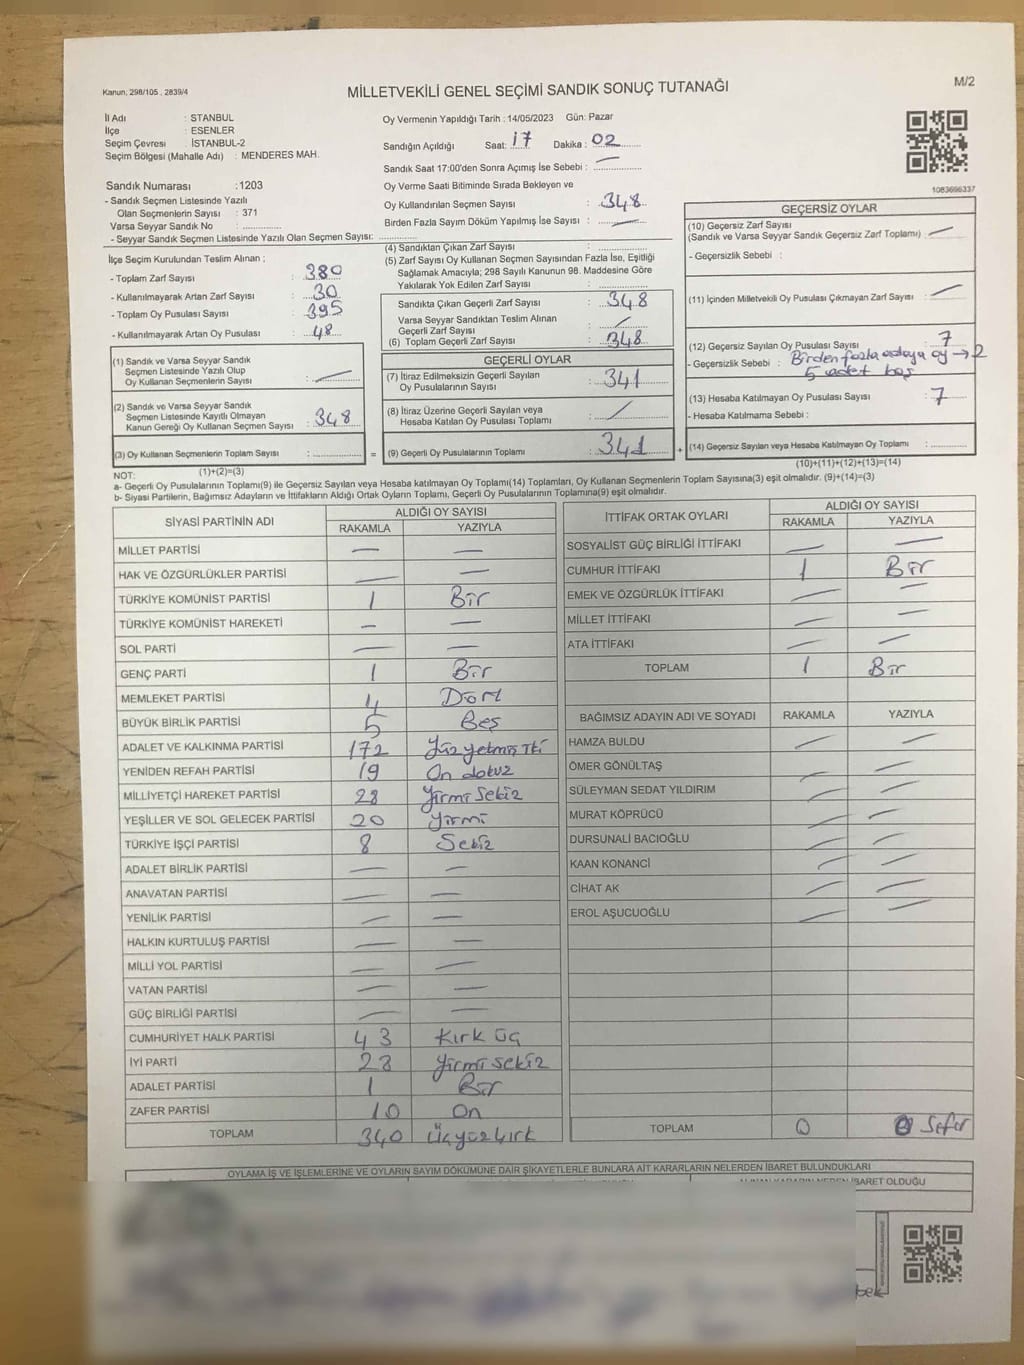 Kanun, 298/105 , 2839/4
MİLLETVEKİLİ GENEL SEÇİMİ SANDIK SONUÇ TUTANAĞI
M/2
İl Adı : STANBUL
İlçe : ESENLER
Seçim Çevresi : İSTANBUL-2
Seçim Bölgesi (Mahalle Adı) : MENDERES MAH.
Sandık Numarası :1203
- Sandık Seçmen Listesinde Yazılı
Olan Seçmenlerin Sayısı : 371
Varsa Seyyar Sandık No :
- Seyyar Sandık Seçmen Listesinde Yazılı Olan Seçmen Sayısı:
Oy Vermenin Yapıldığı Tarih : 14/05/2023 Gün: Pazar
Sandığın Açıldığı Saat: 17 Dakika : 02
Sandık Saat 17:00'den Sonra Açımış İse Sebebi : —
Oy Verme Saati Bitiminde Sırada Bekleyen ve
Oy Kullandırılan Seçmen Sayısı : 348
Birden Fazla Sayım Döküm Yapılmış İse Sayısı : —
1083696337
İlçe Seçim Kurulundan Teslim Alınan ;
- Toplam Zarf Sayısı : 380
- Kullanılmayarak Artan Zarf Sayısı : 30
- Toplam Oy Pusulası Sayısı : 395
- Kullanılmayarak Artan Oy Pusulası : 48
(1) Sandık ve Varsa Seyyar Sandık
Seçmen Listesinde Yazılı Olup
Oy Kullanan Seçmenlerin Sayısı : —
(2) Sandık ve Varsa Seyyar Sandık
Seçmen Listesinde Kayıtlı Olmayan
Kanun Gereği Oy Kullanan Seçmen Sayısı : 348
(3) Oy Kullanan Seçmenlerin Toplam Sayısı :
(1)+(2)=(3)
(4) Sandıktan Çıkan Zarf Sayısı :
(5) Zarf Sayısı Oy Kullanan Seçmen Sayısından Fazla İse, Eşitliği
Sağlamak Amacıyla; 298 Sayılı Kanunun 98. Maddesine Göre
Yakılarak Yok Edilen Zarf Sayısı :
Sandıkta Çıkan Geçerli Zarf Sayısı : 348
Varsa Seyyar Sandıktan Teslim Alınan
Geçerli Zarf Sayısı : /
(6) Toplam Geçerli Zarf Sayısı : 348
GEÇERLİ OYLAR
(7) İtiraz Edilmeksizin Geçerli Sayılan
Oy Pusulalarının Sayısı : 341
(8) İtiraz Üzerine Geçerli Sayılan veya
Hesaba Katılan Oy Pusulası Toplamı : /
= (9) Geçerli Oy Pusulalarının Toplamı : 341 +
GEÇERSİZ OYLAR
(10) Geçersiz Zarf Sayısı
(Sandık ve Varsa Seyyar Sandık Geçersiz Zarf Toplamı) : —
- Geçersizlik Sebebi :
(11) İçinden Milletvekili Oy Pusulası Çıkmayan Zarf Sayısı : —
(12) Geçersiz Sayılan Oy Pusulası Sayısı : 7
- Geçersizlik Sebebi : Birden fazla adaya oy → 2
5 adet boş
(13) Hesaba Katılmayan Oy Pusulası Sayısı : 7
- Hesaba Katılmama Sebebi :
(14) Geçersiz Sayılan veya Hesaba Katılmayan Oy Toplamı :
(10)+(11)+(12)+(13)=(14)
NOT:
a- Geçerli Oy Pusulalarının Toplamı(9) ile Geçersiz Sayılan veya Hesaba katılmayan Oy Toplamı(14) Toplamları, Oy Kullanan Seçmenlerin Toplam Sayısına(3) eşit olmalıdır. (9)+(14)=(3)
b- Siyasi Partilerin, Bağımsız Adayların ve İttifakların Aldığı Ortak Oyların Toplamı, Geçerli Oy Pusulalarının Toplamına(9) eşit olmalıdır.
SİYASİ PARTİNİN ADI ALDIĞI OY SAYISI
RAKAMLA YAZIYLA
MİLLET PARTİSİ — —
HAK VE ÖZGÜRLÜKLER PARTİSİ — —
TÜRKİYE KOMÜNİST PARTİSİ 1 Bir
TÜRKİYE KOMÜNİST HAREKETİ — —
SOL PARTİ — —
GENÇ PARTİ 1 Bir
MEMLEKET PARTİSİ 4 Dört
BÜYÜK BİRLİK PARTİSİ 5 Beş
ADALET VE KALKINMA PARTİSİ 172 Yüz yetmiş iki
YENİDEN REFAH PARTİSİ 19 On dokuz
MİLLİYETÇİ HAREKET PARTİSİ 28 Yirmi sekiz
YEŞİLLER VE SOL GELECEK PARTİSİ 20 Yirmi
TÜRKİYE İŞÇİ PARTİSİ 8 Sekiz
ADALET BİRLİK PARTİSİ — —
ANAVATAN PARTİSİ — —
YENİLİK PARTİSİ — —
HALKIN KURTULUŞ PARTİSİ — —
MİLLİ YOL PARTİSİ — —
VATAN PARTİSİ — —
GÜÇ BİRLİĞİ PARTİSİ — —
CUMHURİYET HALK PARTİSİ 43 Kırk üç
İYİ PARTİ 28 Yirmi sekiz
ADALET PARTİSİ 1 Bir
ZAFER PARTİSİ 10 On
TOPLAM 340 Üçyüzkırk
İTTİFAK ORTAK OYLARI ALDIĞI OY SAYISI
RAKAMLA YAZIYLA
SOSYALİST GÜÇ BİRLİĞİ İTTİFAKI — —
CUMHUR İTTİFAKI 1 Bir
EMEK VE ÖZGÜRLÜK İTTİFAKI — —
MİLLET İTTİFAKI — —
ATA İTTİFAKI — —
TOPLAM 1 Bir
BAĞIMSIZ ADAYIN ADI VE SOYADI RAKAMLA YAZIYLA
HAMZA BULDU — —
ÖMER GÖNÜLTAŞ — —
SÜLEYMAN SEDAT YILDIRIM — —
MURAT KÖPRÜCÜ — —
DURSUNALİ BACIOĞLU — —
KAAN KONANCİ — —
CİHAT AK — —
EROL AŞUCUOĞLU — —
TOPLAM 0 Sıfır
OYLAMA İŞ VE İŞLEMLERİNE VE OYLARIN SAYIM DÖKÜMÜNE DAİR ŞİKAYETLERLE BUNLARA AİT KARARLARIN NELERDEN İBARET BULUNDUKLARI
İBARET OLDUĞU